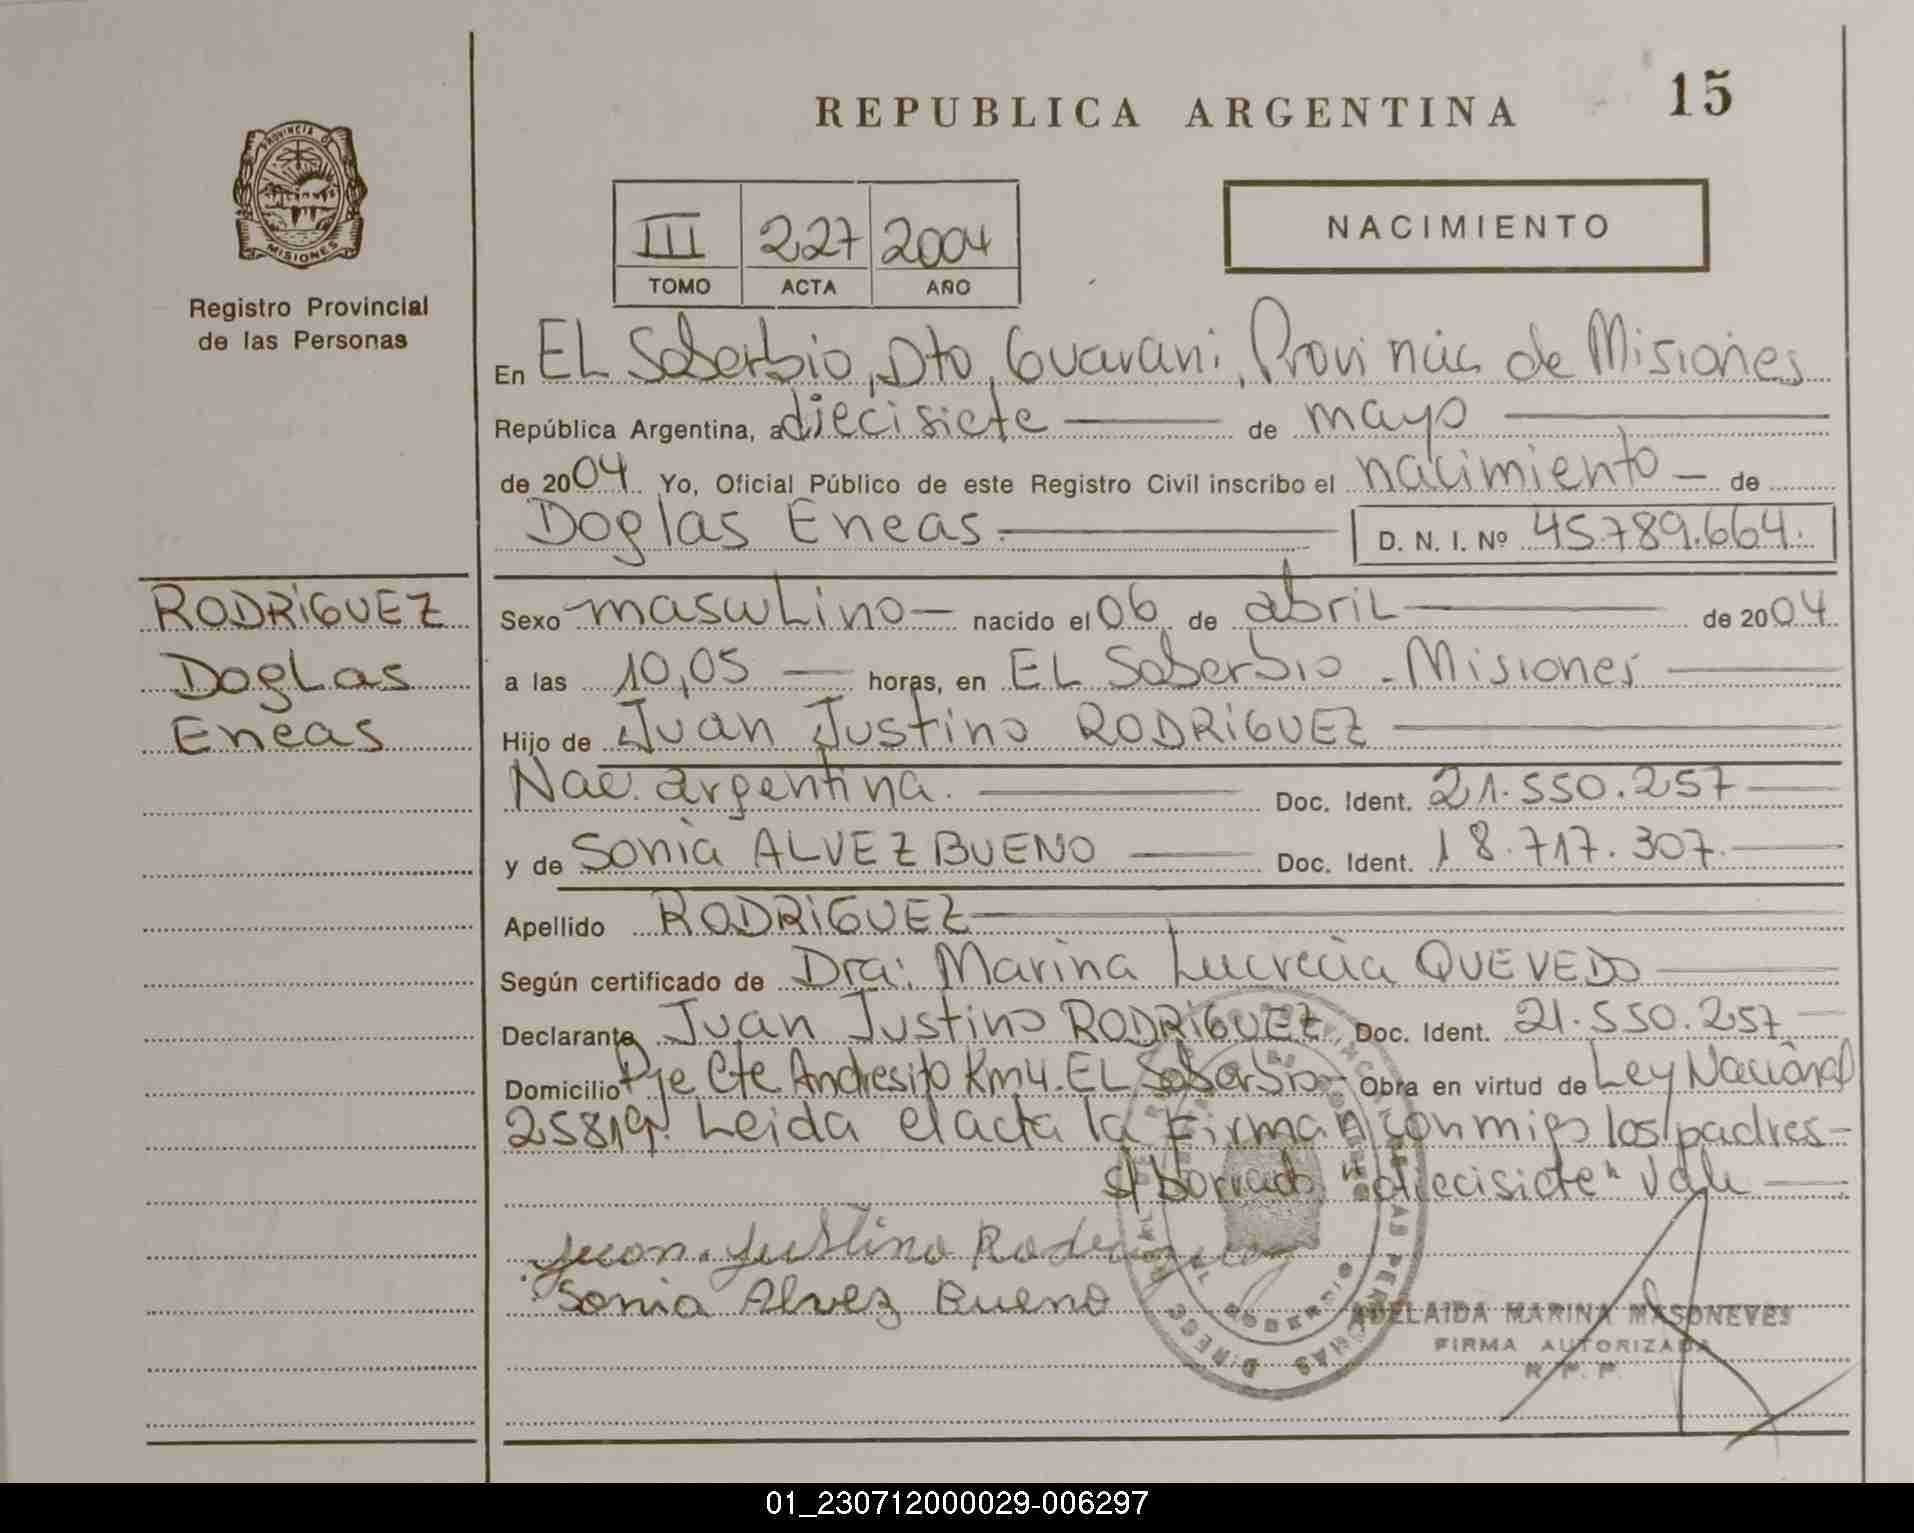 REPUBLICA ARGENTINA
15
PROVINCIA DE
MISIONES
Registro Provincial
de las Personas
III 227 2004
TOMO ACTA AÑO
NACIMIENTO
En EL Soberbio, Dto, Guarani, Provincia de Misiones
República Argentina, a diecisiete de mayo
de 2004 Yo, Oficial Público de este Registro Civil inscribo el nacimiento de
Doglas Eneas. D. N. I. Nº 45.789.664.
RODRIGUEZ
Doglas
Eneas
Sexo masculino nacido el 06 de abril de 2004
a las 10,05 horas, en EL Soberbio - Misiones
Hijo de Juan Justino RODRIGUEZ
Nac. argentina. Doc. Ident. 21.550.257
y de Sonia ALVEZ BUENO Doc. Ident. 18.717.307.
Apellido RODRIGUEZ
Según certificado de Dra: Marina Lucrecia QUEVEDO
Declarante Juan Justino RODRIGUEZ, Doc. Ident. 21.550.257
Domicilio Pje Cte Andresito Km4. EL Soberbio- Obra en virtud de Ley Nacional
25819. Leida el acta la Firman conmigo los padres-
s/borrado "diecisiete" vale
Juan Justino Rodriguez
Sonia Alvez Bueno
ADELAIDA MARINA MASONEVES
FIRMA AUTORIZADA
R. P. P.
01_230712000029-006297